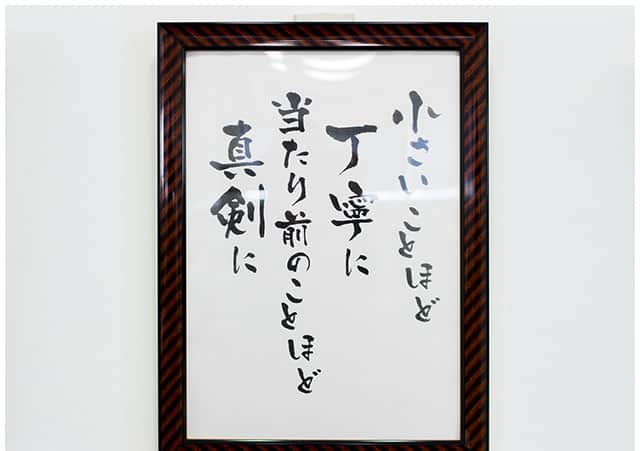 小さいことほど
丁寧に
当たり前のことほど
真剣に